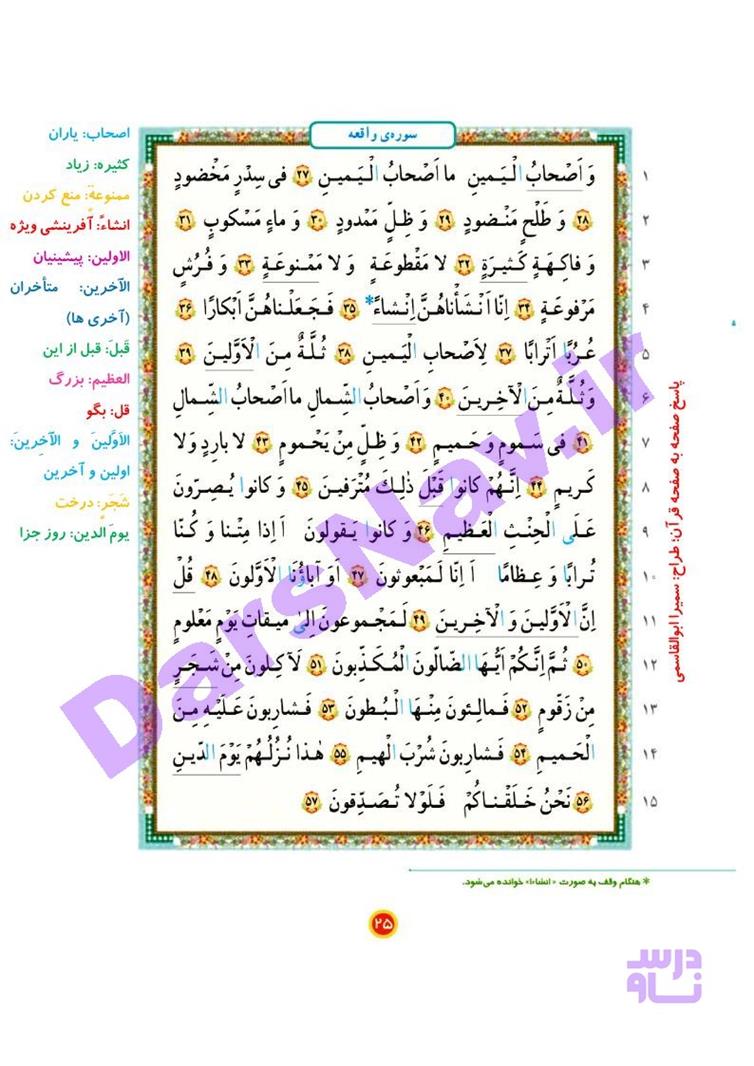 سوره‌ی واقعه
وَ اَصْحابُ الْیَمینِ ما اَصْحابُ الْیَمینِ ﴿۲۷﴾ فی سِدْرٍ مَخْضودٍ ۱
﴿۲۸﴾ وَ طَلْحٍ مَنْضودٍ ﴿۲۹﴾ وَ ظِلٍّ مَمْدودٍ ﴿۳۰﴾ وَ ماءٍ مَسْکوبٍ ﴿۳۱﴾ ۲
وَ فاکِهَةٍ کَثیرَةٍ ﴿۳۲﴾ لا مَقْطوعَةٍ وَ لا مَمْنوعَةٍ ﴿۳۳﴾ وَ فُرُشٍ ۳
مَرْفوعَةٍ ﴿۳۴﴾ اِنّا اَنْشَأْناهُنَّ اِنْشاءً* ﴿۳۵﴾ فَجَعَلْناهُنَّ اَبْکارًا ﴿۳۶﴾ ۴
عُرُبًا اَتْرابًا ﴿۳۷﴾ لِاَصْحابِ الْیَمینِ ﴿۳۸﴾ ثُلَّةٌ مِنَ الْاَوَّلینَ ﴿۳۹﴾ ۵
وَ ثُلَّةٌ مِنَ الْآخِرینَ ﴿۴۰﴾ وَ اَصْحابُ الشِّمالِ ما اَصْحابُ الشِّمالِ ۶
﴿۴۱﴾ فی سَمومٍ وَ حَمیمٍ ﴿۴۲﴾ وَ ظِلٍّ مِنْ یَحْمومٍ ﴿۴۳﴾ لا بارِدٍ وَ لا ۷
کَریمٍ ﴿۴۴﴾ اِنَّهُمْ کانوا قَبْلَ ذٰلِکَ مُتْرَفینَ ﴿۴۵﴾ وَ کانوا یُصِرّونَ ۸
عَلَی الْحِنْثِ الْعَظیمِ ﴿۴۶﴾ وَ کانوا یَقولونَ اَ اِذا مِتْنا وَ کُنّا ۹
تُرابًا وَ عِظامًا اَ اِنّا لَمَبْعوثونَ ﴿۴۷﴾ اَوَ آباؤُنَا الْاَوَّلونَ ﴿۴۸﴾ قُلْ ۱۰
اِنَّ الْاَوَّلینَ وَ الْآخِرینَ ﴿۴۹﴾ لَمَجْموعونَ اِلیٰ میقاتِ یَوْمٍ مَعْلومٍ ۱۱
﴿۵۰﴾ ثُمَّ اِنَّکُمْ اَیُّهَا الضّالّونَ الْمُکَذِّبونَ ﴿۵۱﴾ لَآکِلونَ مِنْ شَجَرٍ ۱۲
مِنْ زَقّومٍ ﴿۵۲﴾ فَمالِئونَ مِنْهَا الْبُطونَ ﴿۵۳﴾ فَشارِبونَ عَلَیْهِ مِنَ ۱۳
الْحَمیمِ ﴿۵۴﴾ فَشارِبونَ شُرْبَ الْهیمِ ﴿۵۵﴾ هٰذا نُزُلُهُمْ یَوْمَ الدّینِ ۱۴
﴿۵۶﴾ نَحْنُ خَلَقْناکُمْ فَلَوْلا تُصَدِّقونَ ﴿۵۷﴾ ۱۵
اصحاب: یاران
کثیره: زیاد
ممنوعةٍ: منع کردن
انشاءً: آفرینشی ویژه
الاولین: پیشینیان
الآخرین: متأخران
(آخری ها)
قَبلَ: قبل از این
العظیم: بزرگ
قل: بگو
الاَوَّلینَ و الآخِرینَ:
اولین و آخرین
شَجَرٍ: درخت
یومَ الدین: روز جزا
پاسخ صفحه به صفحه قرآن: طراح: سمیرا ابوالقاسمی
* هنگام وقف به صورت «انشاءا» خوانده می‌شود.
۲۵
DarsNav.ir
درس
ناو